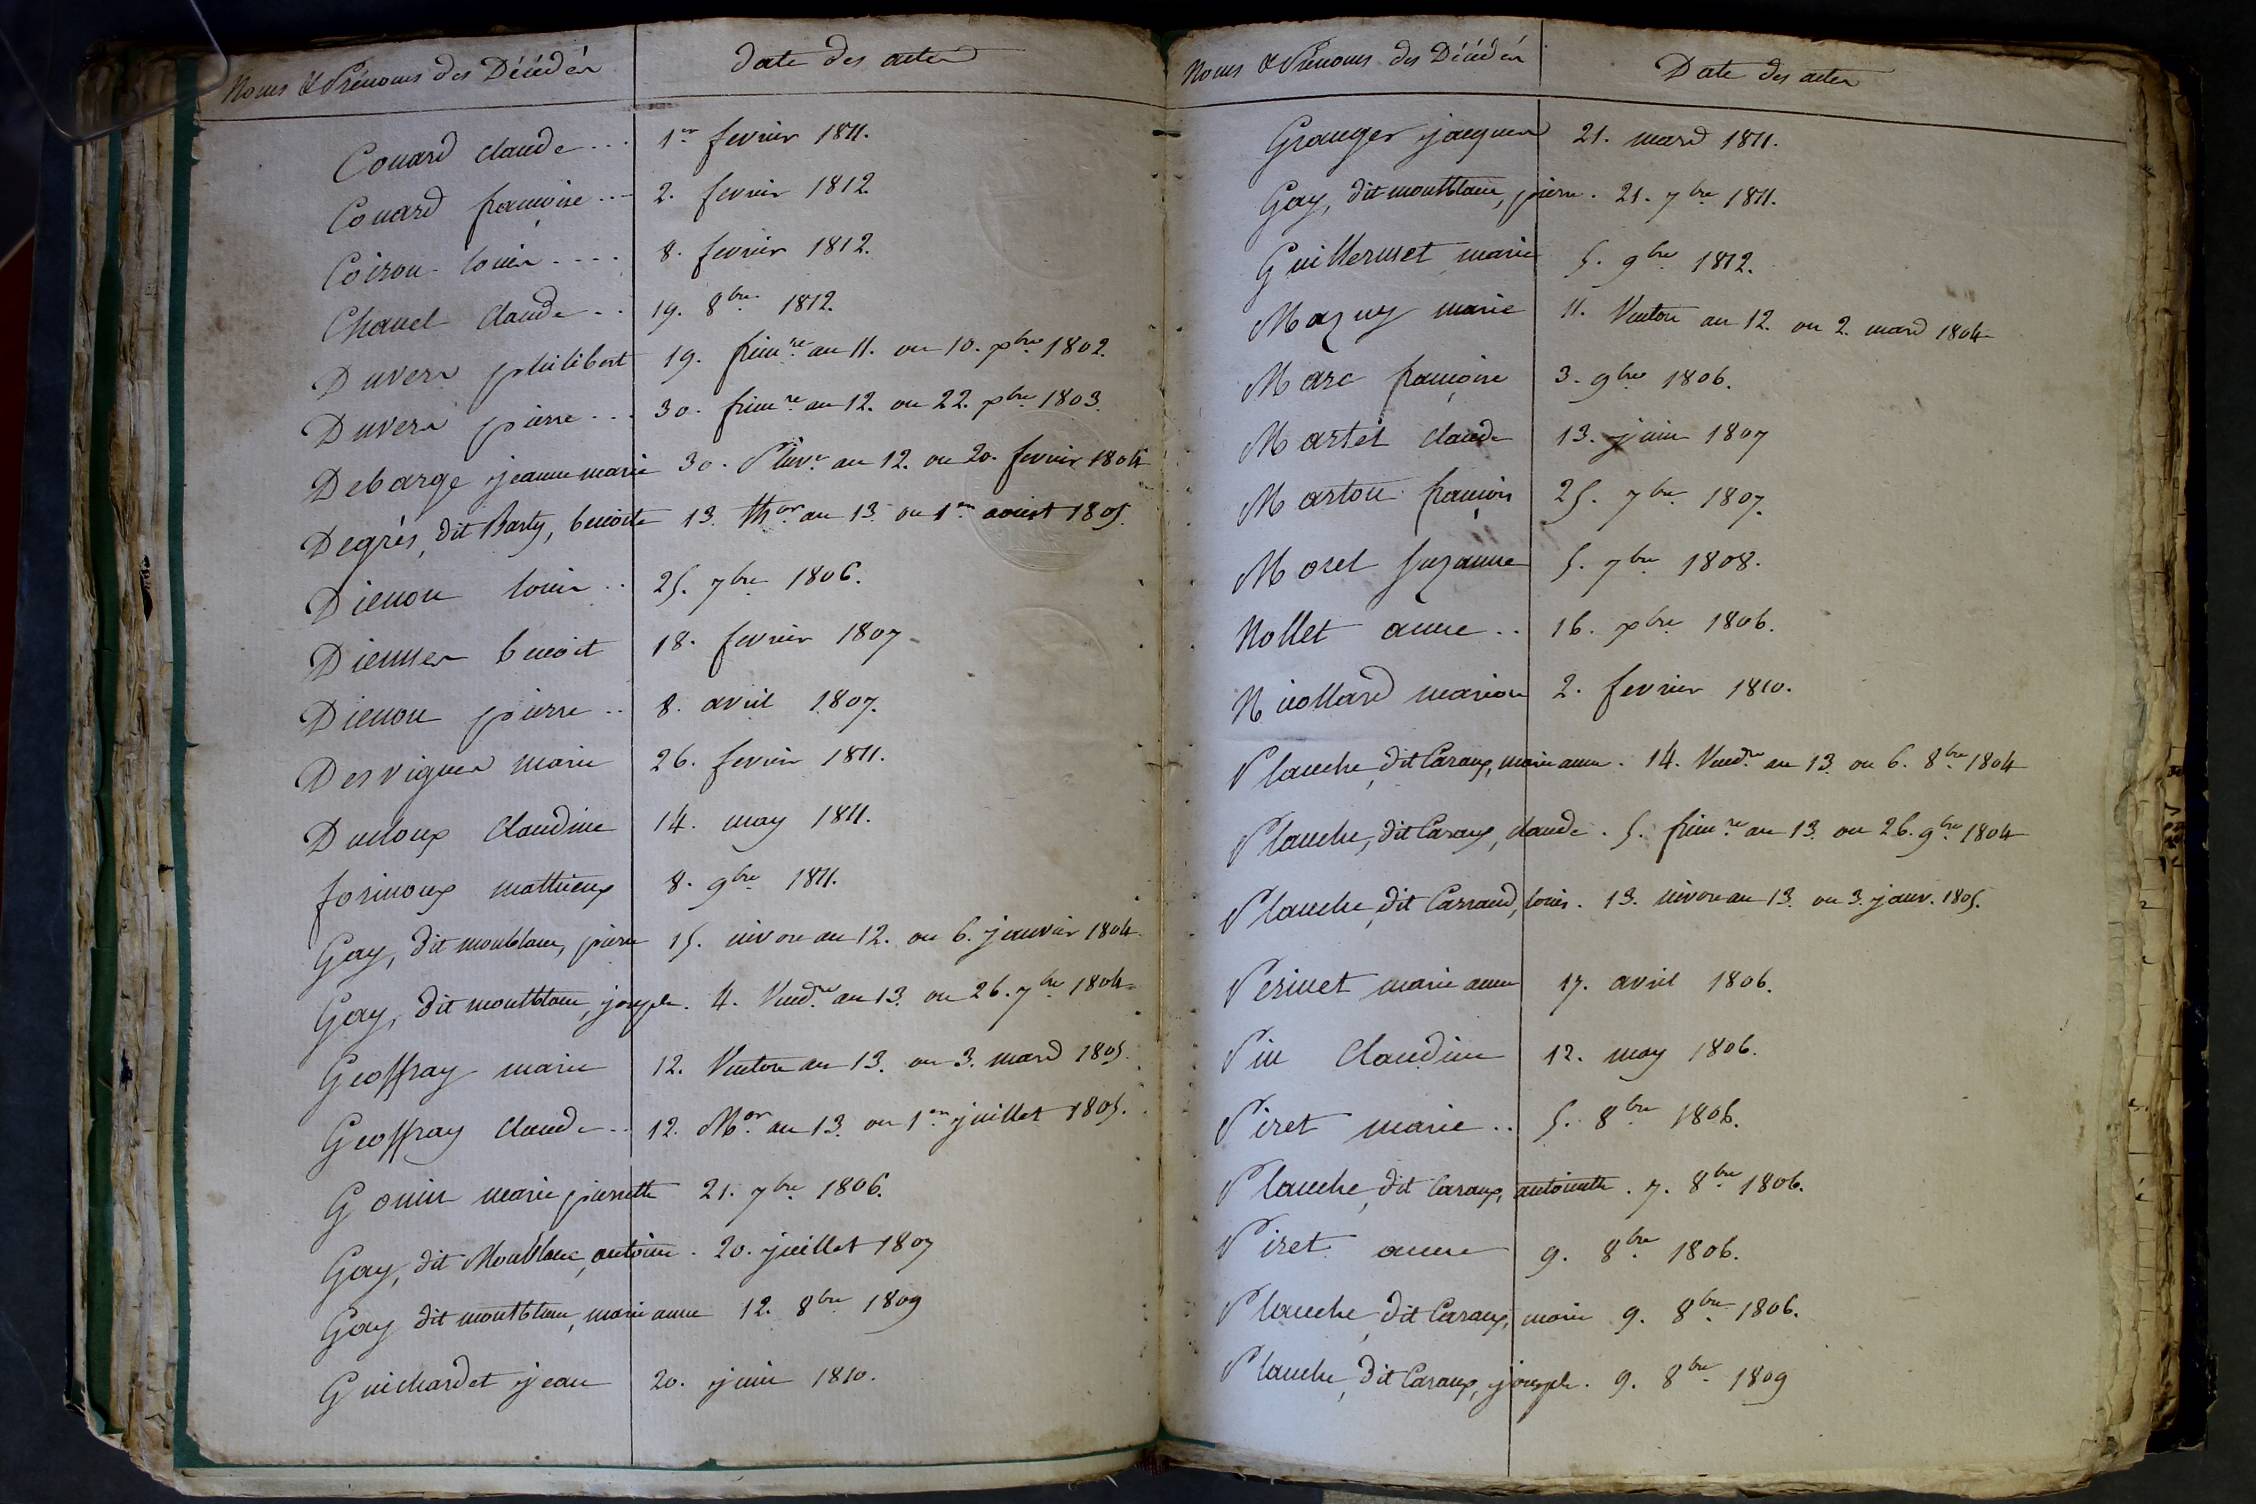 Noms & Prénoms des Décédés
Date des actes
Couard claude ... 1er fevrier 1811.
Couard françoise ... 2. fevrier 1812
Coizon louis .... 8. fevrier 1812.
Chanel Claude .. 19. 8bre 1812.
Duvers philibert 19. frimre an 11. ou 10. xbre 1802.
Duvers pierre ... 30. frimre an 12. ou 22. xbre 1803.
Debarge jeanne marie 30. Pluve an 12. ou 20. fevrier 1804
Degrés, dit Barty, benoite 13. thor an 13. ou 1er aoust 1805.
Dienon louis .. 25. 7bre 1806.
Diennes benoit 18. fevrier 1807
Dienon pierre .. 8. avril 1807.
Desvignes marie 26. fevrier 1811.
Ducloux Claudine 14. may 1811.
forinoux mathieux 8. 9bre 1811.
Gay, dit montblanc, pierre 15. nivose an 12. ou 6. janvier 1804
Gay, dit montblanc, joseph. 4. Vendre an 13. ou 26. 7bre 1804
Geoffray marie 12. Ventose an 13. ou 3. mars 1805.
Geoffray claude .. 12. Mor an 13. ou 1er juillet 1805.
Gonin marie pierrette 21. 7bre 1806.
Gay, dit Montblanc, antoine. 20. juillet 1807
Gay dit montblanc, marie anne 12. 8bre 1809
Guichardet jean 20. juin 1810.
Noms & Prénoms des Décédés
Date des actes
Granger jacques 21. mars 1811.
Gay, dit montblanc, pierre. 21. 7bre 1811.
Guillermet marie 5. 9bre 1812.
Mazuy marie 11. Ventose an 12. ou 2. mars 1804
Marc françoise 3. 9bre 1806.
Martel claude 13. juin 1807
Marton françois 25. 7bre 1807.
Morel suzanne 5. 7bre 1808.
Nollet anne .. 16. xbre 1806.
Nicollard marion 2. fevrier 1810.
Planche, dit Caraux, marie anne. 14. Vendre an 13. ou 6. 8bre 1804
Planche, dit Caraux, claude. 5. frimre an 13. ou 26. 9bre 1804
Planche, dit Carraud, louis. 13. nivose an 13. ou 3. janv. 1805.
Perinet marie anne 17. avril 1806.
Pin Claudine 12. may 1806.
Piret marie .. 5. 8bre 1806.
Planche, dit Caraux, antoinette. 7. 8bre 1806.
Piret anne 9. 8bre 1806.
Planche, dit Caraux, marie 9. 8bre 1806.
Planche, dit Caraux, joseph. 9. 8bre 1809